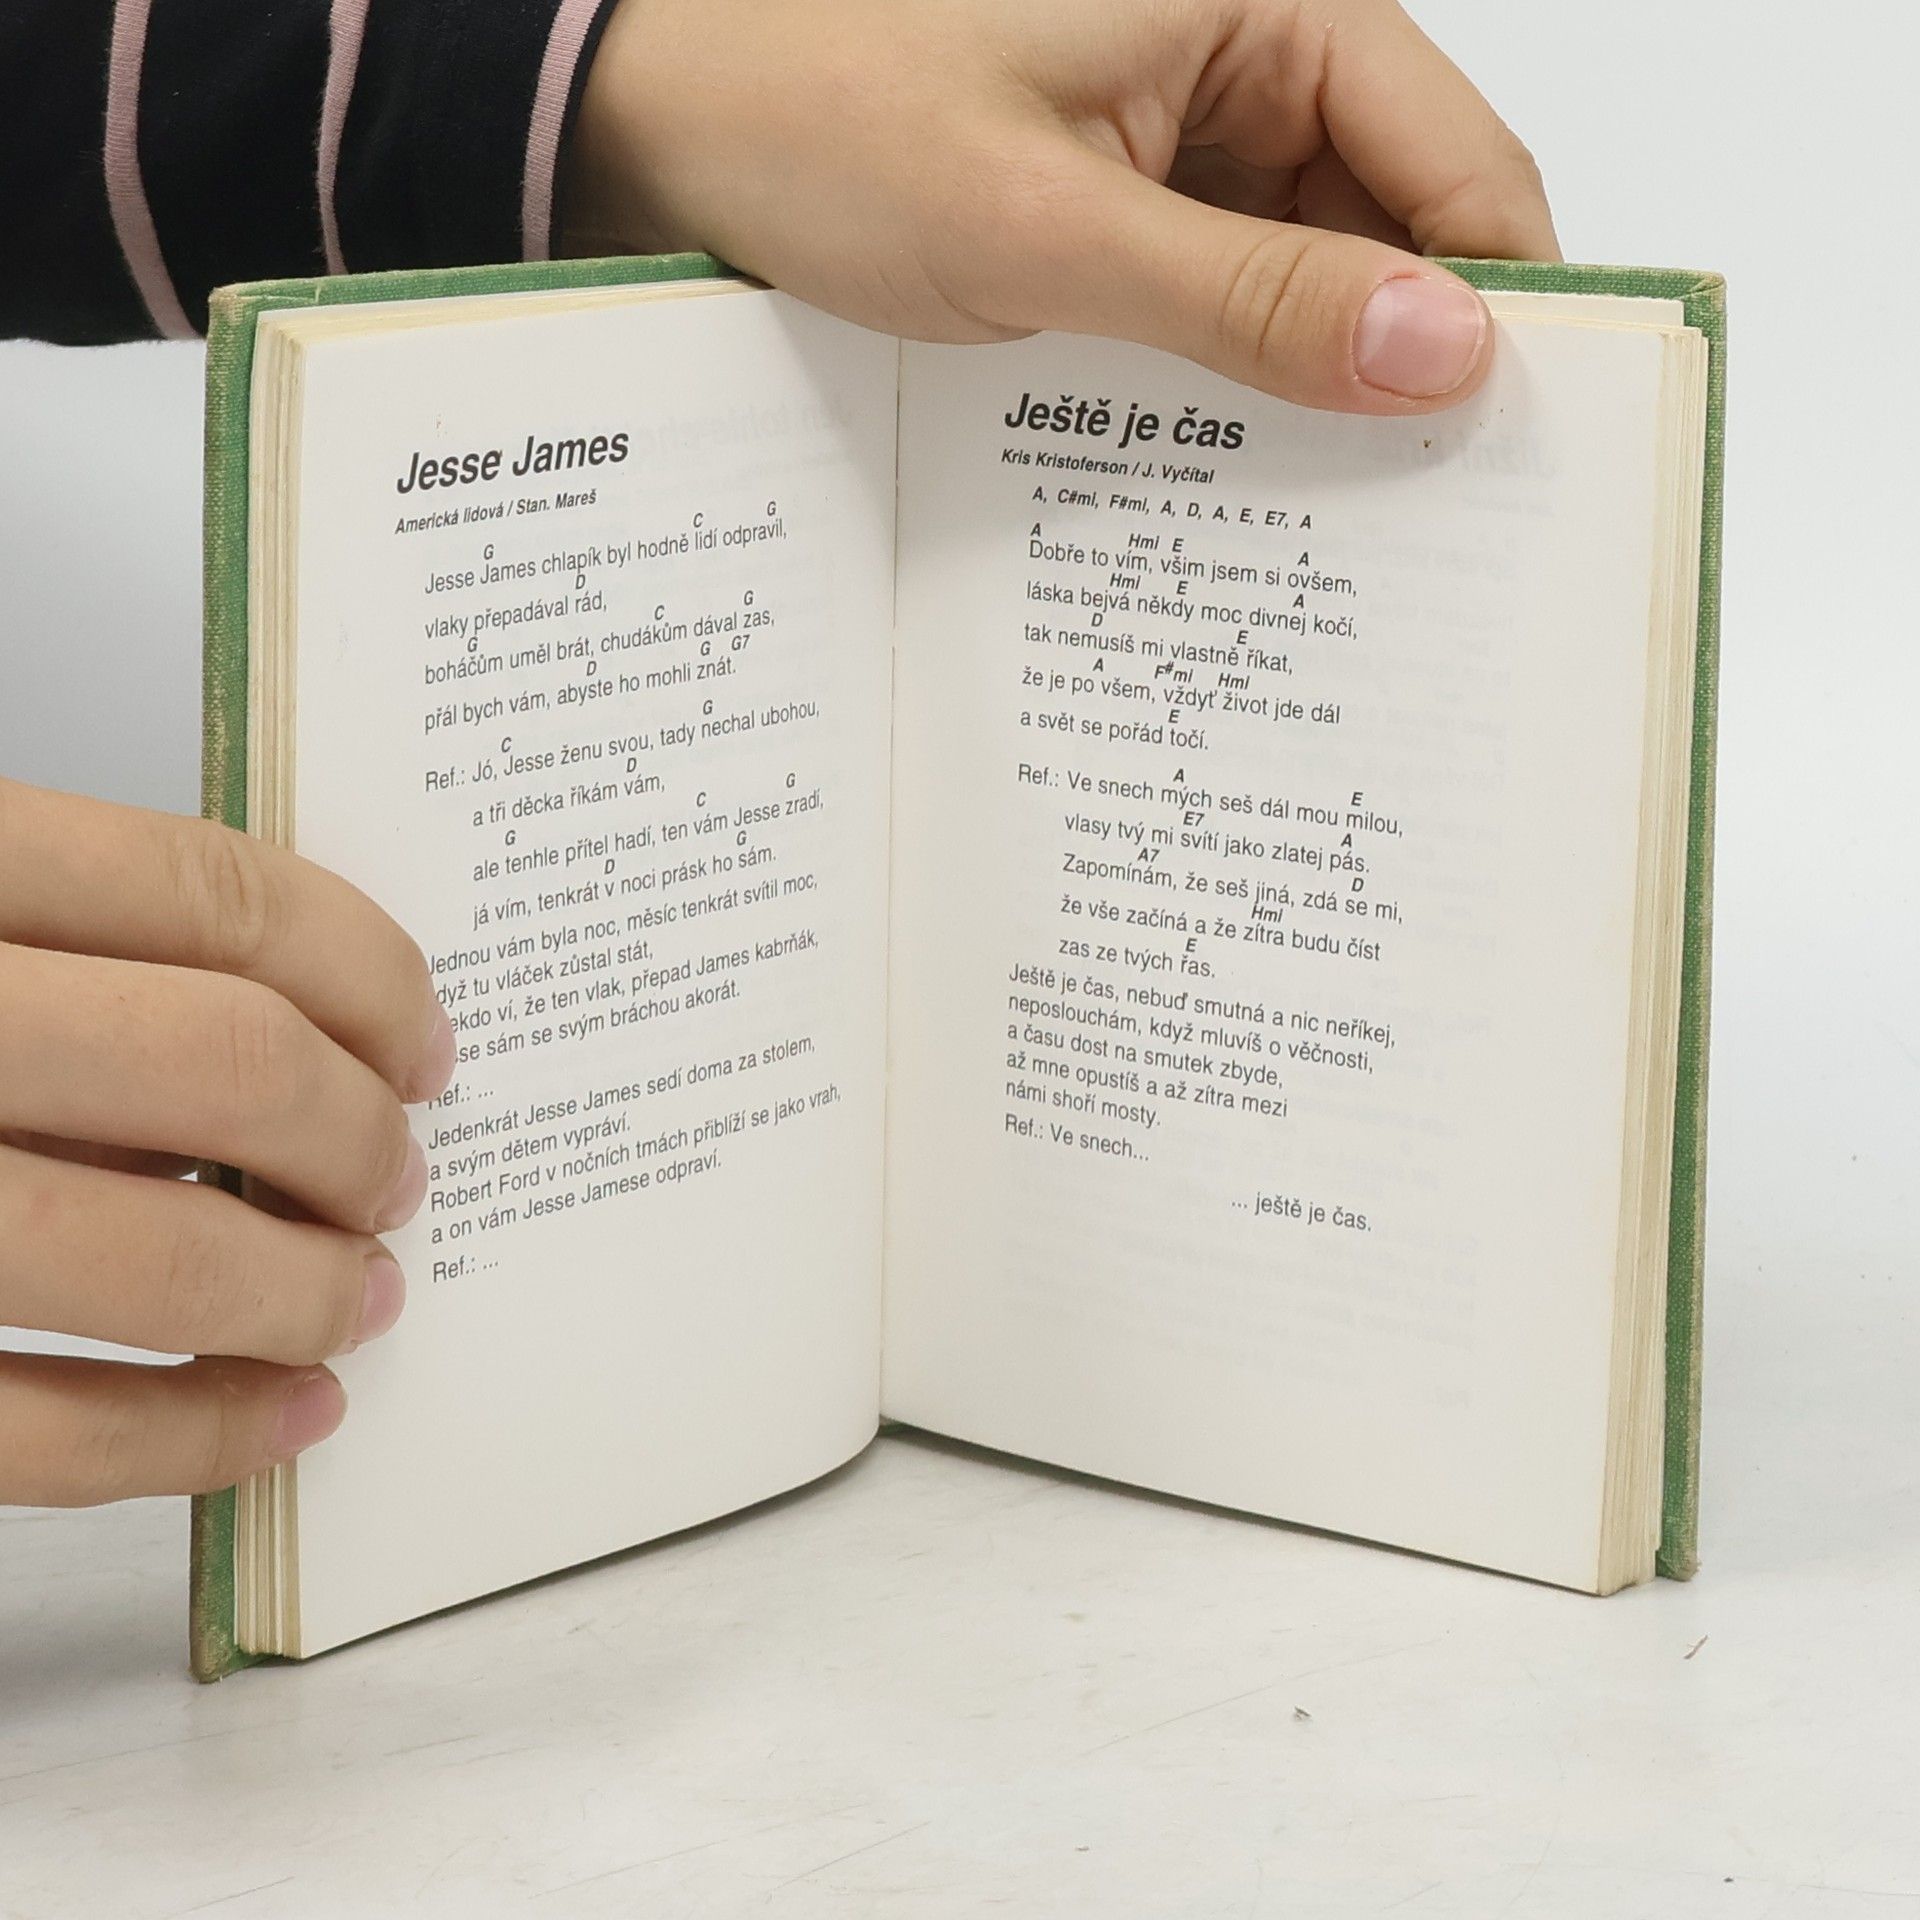 Jesse James
Americká lidová / Stan. Mareš
G C G
Jesse James chlapík byl hodně lidí odpravil,
D
vlaky přepadával rád,
G C G
boháčům uměl brát, chudákům dával zas,
D G G7
přál bych vám, abyste ho mohli znát.
C G
Ref.: Jó, Jesse ženu svou, tady nechal ubohou,
D
a tři děcka říkám vám,
G C G
ale tenhle přítel hadí, ten vám Jesse zradí,
D G
já vím, tenkrát v noci prásk ho sám.
Jednou vám byla noc, měsíc tenkrát svítil moc,
dyž tu vláček zůstal stát,
ekdo ví, že ten vlak, přepad James kabrňák,
se sám se svým bráchou akorát.
Ref.: ...
Jedenkrát Jesse James sedí doma za stolem,
a svým dětem vypráví.
Robert Ford v nočních tmách přiblíží se jako vrah,
a on vám Jesse Jamese odpraví.
Ref.: ...
Ještě je čas
Kris Kristoferson / J. Vyčítal
A, C#mi, F#mi, A, D, A, E, E7, A
A Hmi E A
Dobře to vím, všim jsem si ovšem,
Hmi E A
láska bejvá někdy moc divnej kočí,
D E
tak nemusíš mi vlastně říkat,
A F#mi Hmi
že je po všem, vždyť život jde dál
E
a svět se pořád točí.
A E
Ref.: Ve snech mých seš dál mou milou,
E7 A
vlasy tvý mi svítí jako zlatej pás.
A7 D
Zapomínám, že seš jiná, zdá se mi,
Hmi
že vše začíná a že zítra budu číst
E
zas ze tvých řas.
Ještě je čas, nebuď smutná a nic neříkej,
neposlouchám, když mluvíš o věčnosti,
a času dost na smutek zbyde,
až mne opustíš a až zítra mezi
námi shoří mosty.
Ref.: Ve snech...
... ještě je čas.